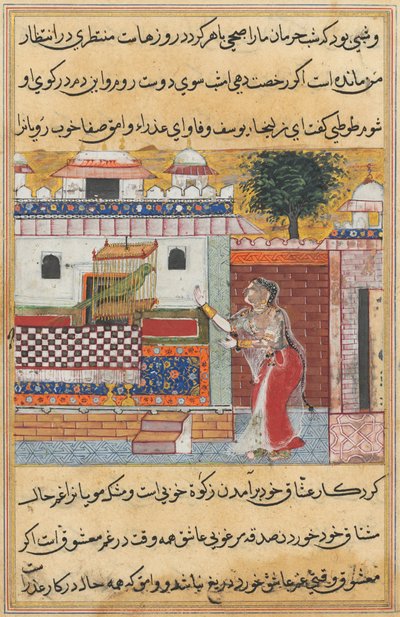 وشبی بود که شب حرمان ما را صبحی باهر کردد روزهاست منتظری در انتظار
من مانده است اگر رخصت دهی امشب سوی دوست روم و این دم در کوی او
شوم طوطی گفت ای زلیخا یوسف و فا و ای عذراء وامق صفا خوب رویانرا
کرد کار عشاق خود برآمدن زکوة خوبی است و مشک مویانرا غم حال
مشتاق خود خوردن صدقه مرغوبی عاشق همه وقت در غم معشوق است اگر
معشوق وقتی غم عاشق خورد دریغ نباشد و وامق که همه حال در کار عذراست